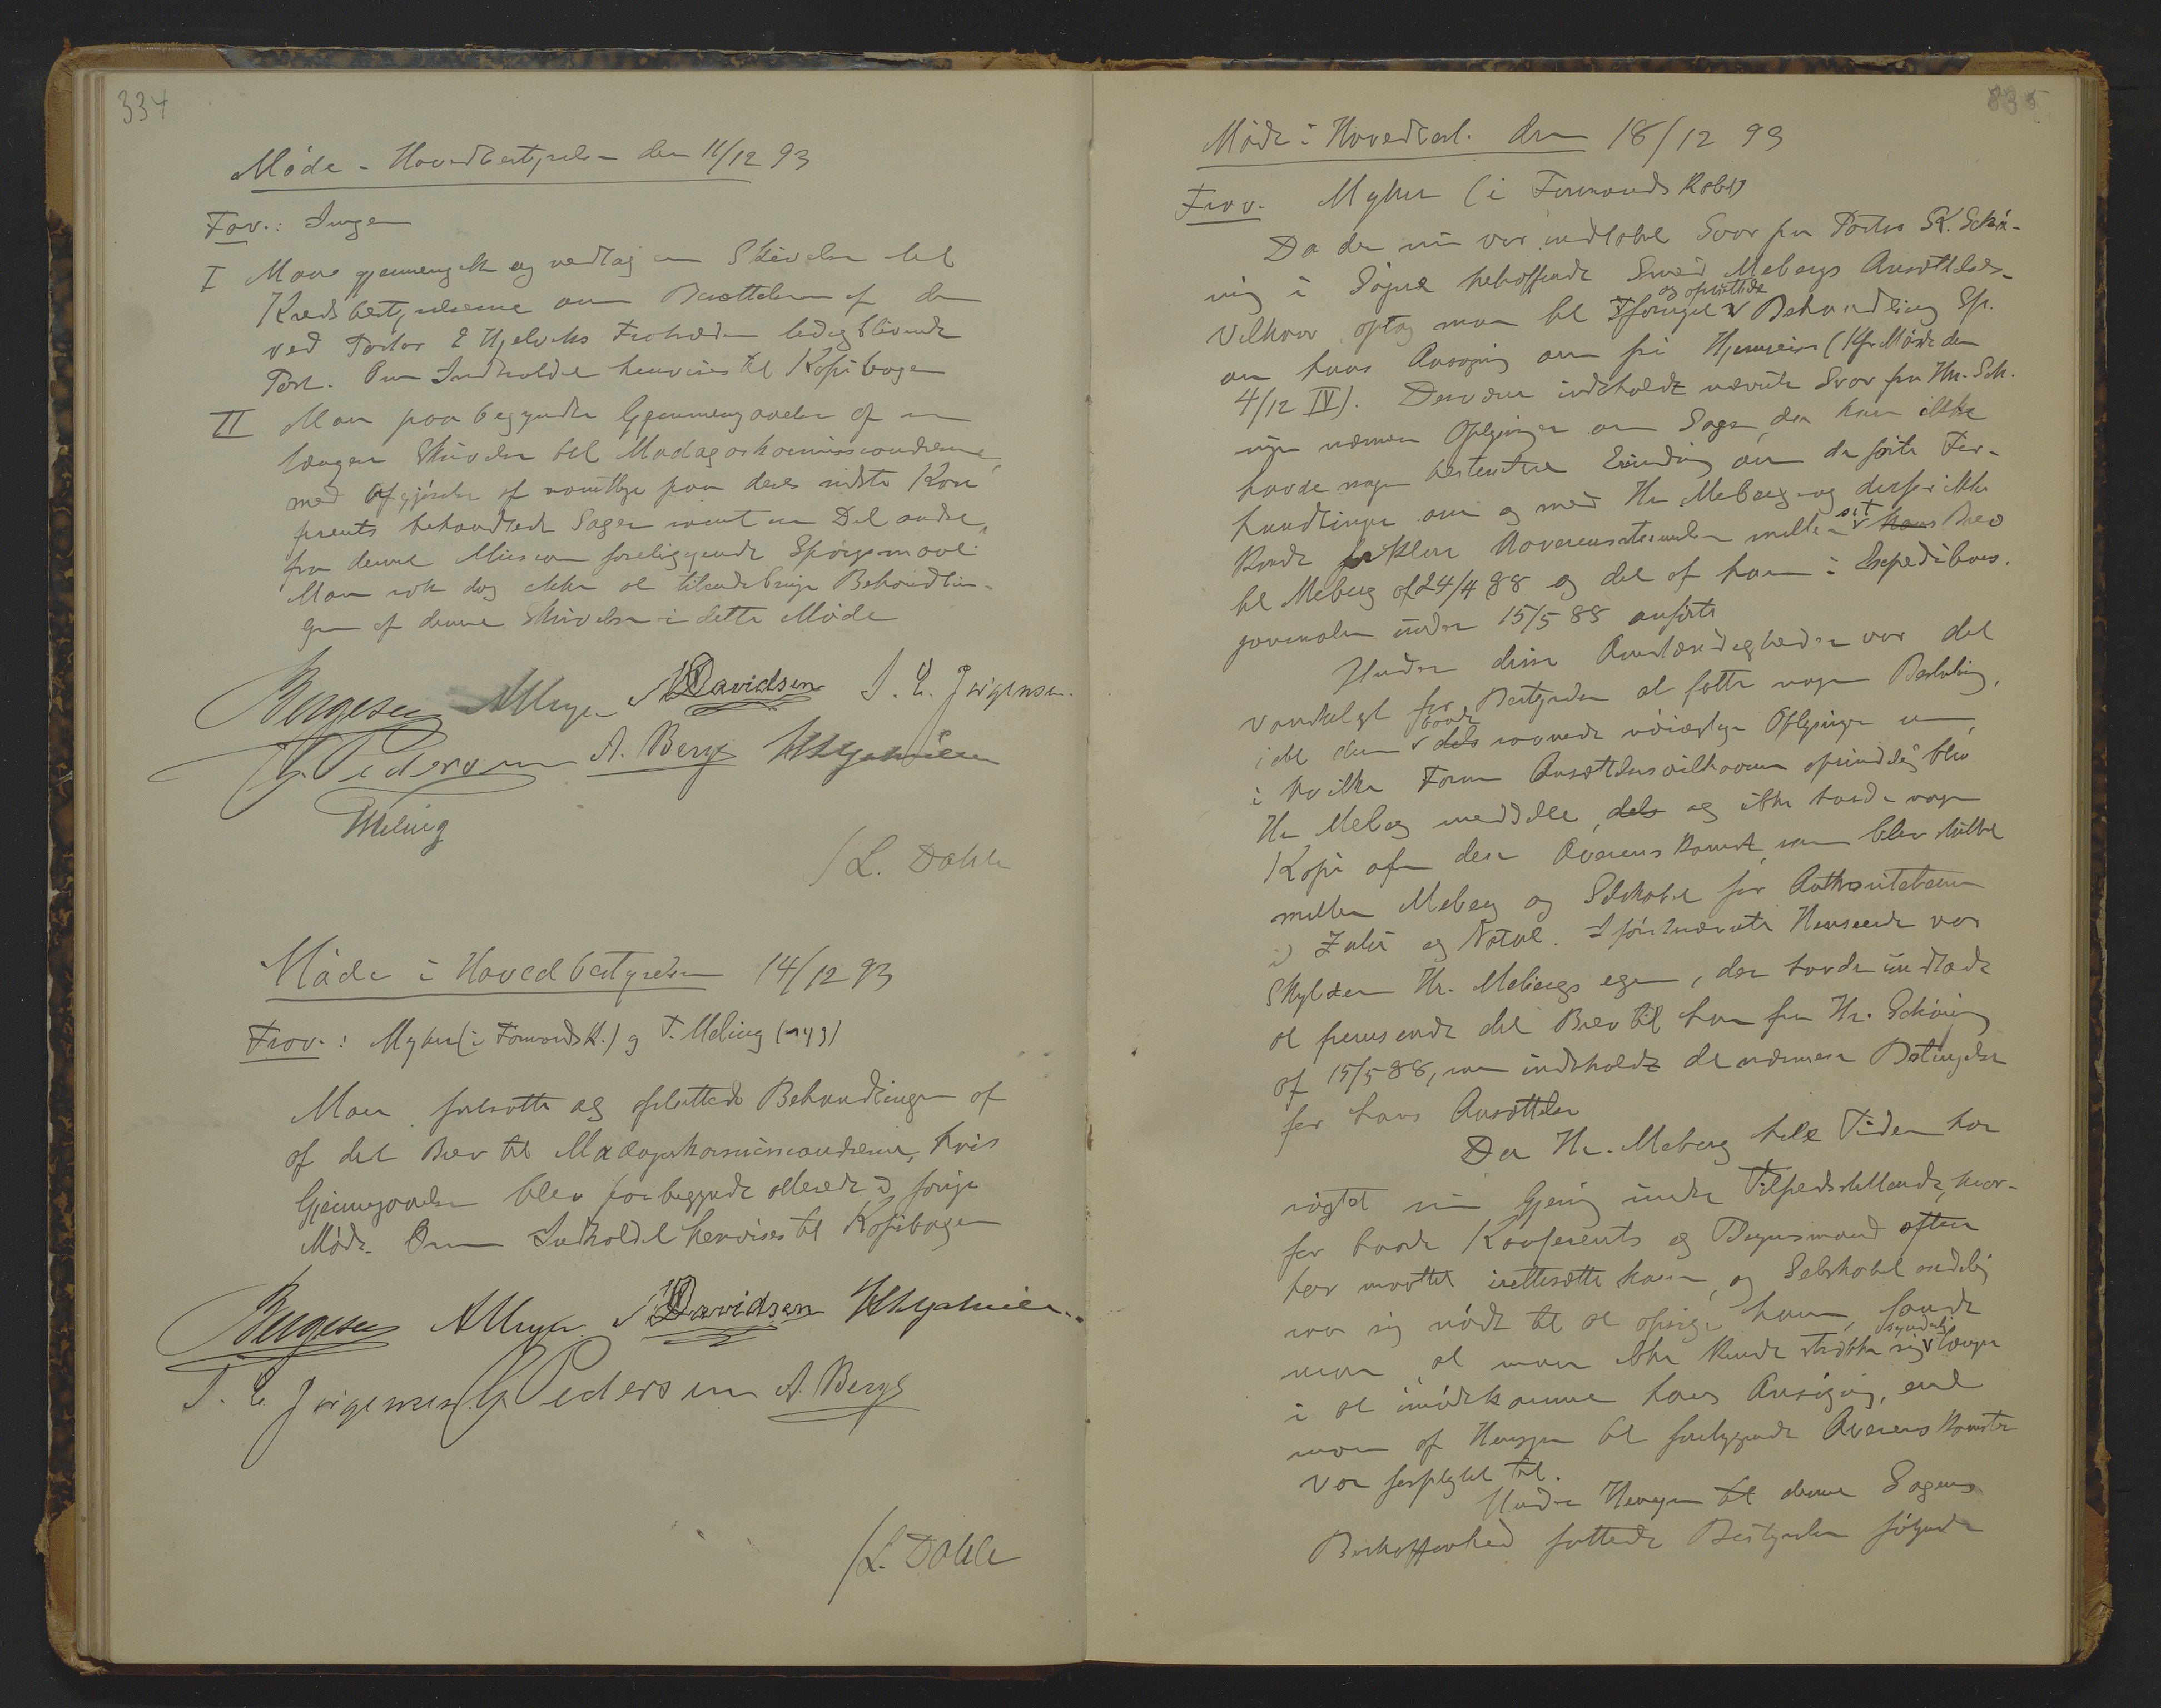 334
Møde i Hovedbestyrelsen den 11/12 93
Frav.: Ingen
I Man gjennemgik og vedtog en Skrivelse til
Kredsbestyrelserne om Besættelsen af den
ved Pastor E Hjelviks Fratræden ledigblivende
Post. Om Indholdet henvises til Kopibogen
II Man paabegyndte Gjennemgaaelsen af en
længere Skrivelse til Madagaskarmissionærerne,
med Afgjørelse af samtlige paa deres sidste Kon
ferents behandlede Sager samt en Del andre
fra denne Mission foreliggende Spørgsmaal.
Man rak dog ikke at tilendebringe Behandlin-
gen af denne Skrivelse i dette Møde
Bergesen AMeyer Davidsen J. E. Jørgensen.
G. Pedersen A. Berg
TMeling
/L. Dahle
Møde i Hovedbestyrelsen 14/12 93
Frav.: Myhre (i Formands K.) og T. Meling (syg)
Man fortsatte og afsluttede Behandlingen af
af det Brev til Madagaskarmissionærerne, hvis
Gjennemgaaelse blev paabegyndt allerede i forrige
Møde. Om Indholdet henvises til Kopibogen
Bergesen AMeyer Davidsen
J. E Jørgensen G. Pedersen A. Berg
/L. Dahle
335
Møde i Hovedbest. den 18/12 93
Frav. Myhre (i Formands Kald)
Da der nu var indløbet Svar fra Pastor SK. Schø-
ning i Søgne betræffende Svend Mebergs Ansættelses-
og afsluttede
Vilkaar, optog man til Behandling Sp.
om hans Ansøgning om fri Hjemreise (Kfr Møde den
4/12 IV). Desværre indeholdt nævnte Svar fra Hr. Sch.
ingen nærmere Oplysninger om Sagen, da han ikke
havde nogen bestemtere Erindring om de førte For-
handlinger om og med Hr Meberg og derfor ikke
sit
kunde forklare Uoverensstemmelsen mellem hans Brev
til Meberg af 24/4 88 og det af ham i Expeditions-
journalen under 15/5 88 anførte
Under disse Omstændigheder var det
vanskeligt for Bestyrelsen at fatte nogen Beslutning,
baade
idet den dels savnede nøiagtige Oplysninger om
i hvilken Form Ansættelsesvilkaarene oprindelig blev
Hr Meberg meddelt, dels og ikke havde nogen
Kopi af den Overenskomst, som blev sluttet
mellem Meberg og Selskabet for
i Zulu og Natal. I førstnævnte Henseende var
Skylden Hr. Mebergs egen, der havde undladt
at fremsende det Brev til ham fra Hr. Schøning
af 15/5 88, som indeholdt de nærmere Betingelser
for hans Ansættelse
Da Hr. Meberg hele Tiden har
røgtet sin Gjerning under Tilfredsstillende, hvor-
for baade Konferents og Tilsynsmand oftere
har maattet irettesætte ham, og Selskabet endelig
saa sig nødt til at opsige ham, fandt
synderlig
man, at man ikke kunde strække sig længere
i at imødekomme hans Ansøgning, end
man af Hensyn til foreliggende Overenskomster
var forpligtet til.
Under Hensyn til denne Sagens
Beskaffenhed fattede Bestyrelsen følgende